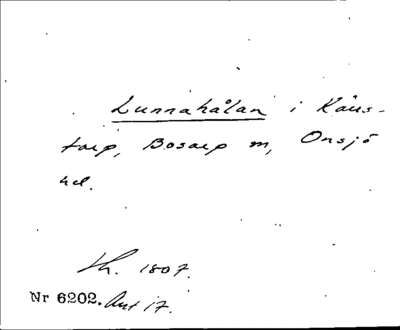 Lunnahålan i Käus-
torp, Bosarp sn, Onsjö
hd.
Sk. 1807.
Nr 6202. Akt 17.